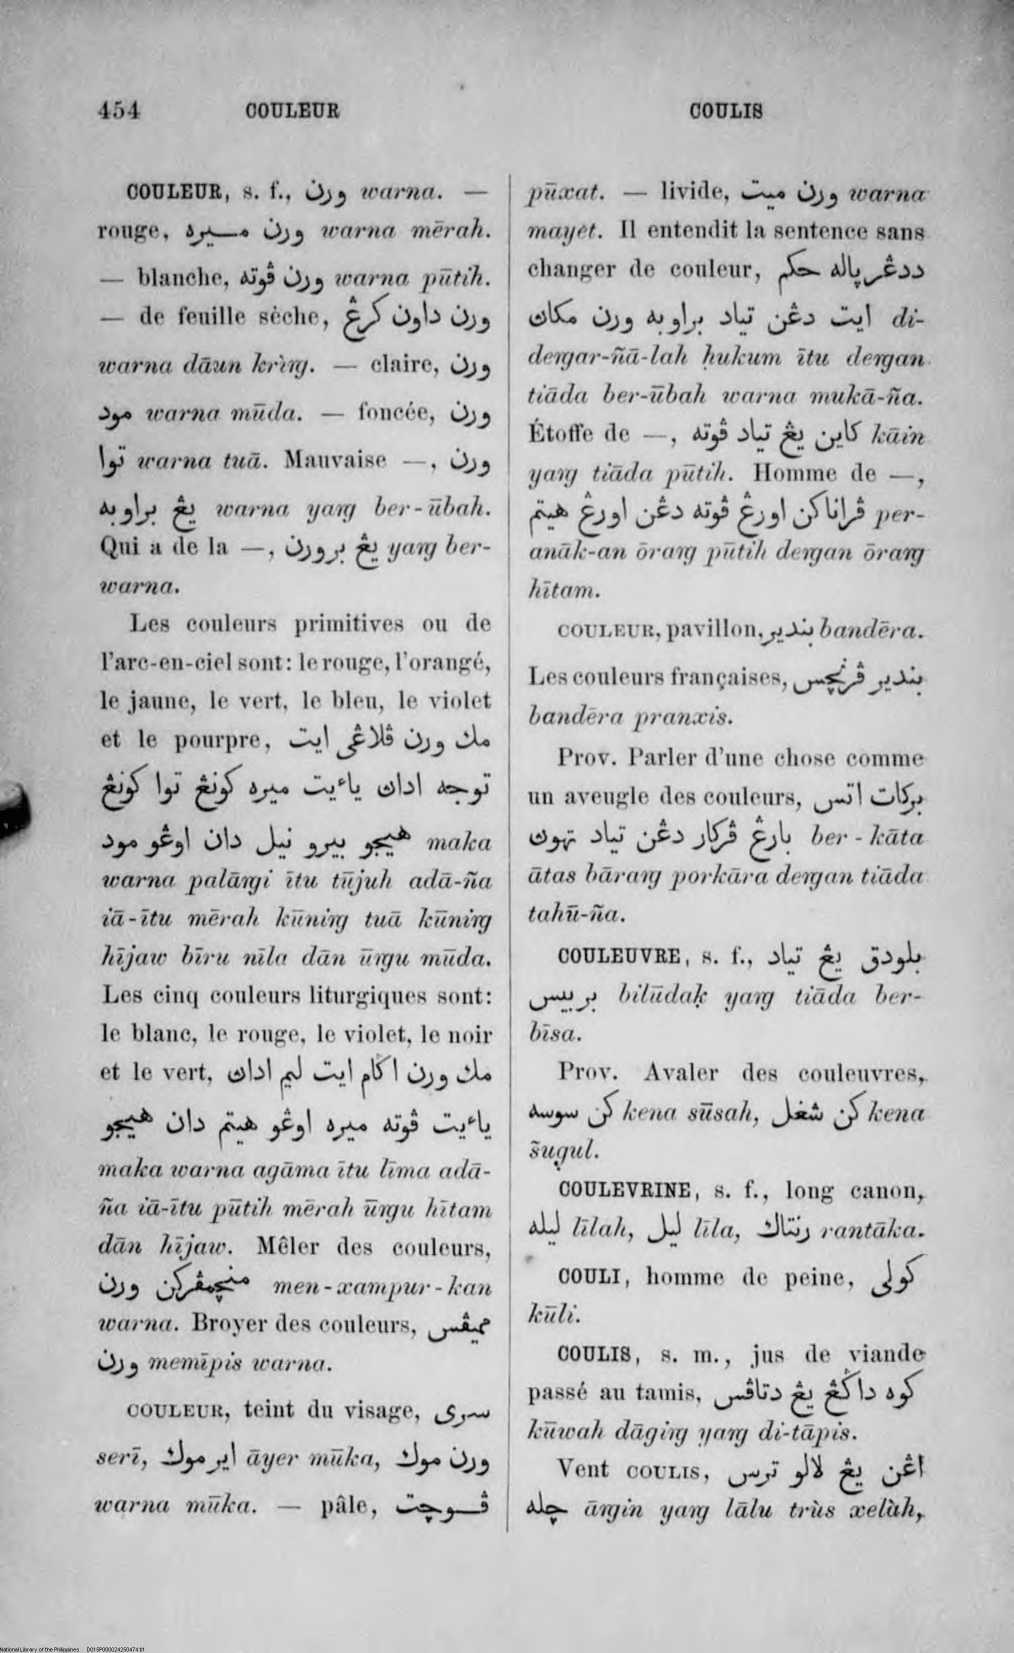 454 COULEUR COULIS
COULEUR, s. f., ورن warna. —
rouge, ورن ميره warna mērah.
— blanche, ورن ڤوته warna pūtih.
— de feuille sèche, ورن داون كرڠ
warna dāun krìŋg. — claire, ورن
مود warna mūda. — foncée, ورن
توا warna tuā. Mauvaise —, ورن
يڠ براوبه warna yaŋg ber-ūbah.
Qui a de la —, يڠ برورن yaŋg ber-
warna.
Les couleurs primitives ou de
l'arc-en-ciel sont: le rouge, l'orangé,
le jaune, le vert, le bleu, le violet
et le pourpre, مك ورن ڤلاڠى ايت
توجه اداڽ ياءيت ميره كونڠ توا كونڠ
هيجو بيرو نيل دان اوڠو مود maka
warna palāŋgi ītu tūjuh adā-ña
iā-ītu mērah kūniŋg tuā kūniŋg
hījaw bīru nīla dān ūŋgu mūda.
Les cinq couleurs liturgiques sont:
le blanc, le rouge, le violet, le noir
et le vert, مك ورن اݢام ايت ليم اداڽ
ياءيت ڤوته ميره اوڠو هيتم دان هيجو
maka warna agāma ītu līma adā-
ña iā-ītu pūtih mērah ūŋgu hītam
dān hījaw. Mêler des couleurs,
منچمڤركن ورن men-xampur-kan
warna. Broyer des couleurs, مميڤس
ورن memīpis warna.
COULEUR, teint du visage, سرى
serī, اير موك āyer mūka, ورن موك
warna mūka. — pâle, ڤوچت
pūxat. — livide, ورن ميت warna
mayet. Il entendit la sentence sans
changer de couleur, ددڠرڽاله حكم
ايت دڠن تياد براوبه ورن مكاڽ di-
deŋgar-ñā-lah ḥukum ītu deŋgan
tiāda ber-ūbah warna mukā-ña.
Étoffe de —, كاين يڠ تياد ڤوته kāin
yaŋg tiāda pūtih. Homme de —,
ڤراناكن اورڠ ڤوته دڠن اورڠ هيتم per-
anāk-an ōraŋg pūtih deŋgan ōraŋg
hītam.
COULEUR, pavillon, بندير bandēra.
Les couleurs françaises, بندير ڤرنچس
bandēra pranxis.
Prov. Parler d'une chose comme
un aveugle des couleurs, بركات اتس
بارڠ ڤركار دڠن تياد تهوڽ ber-kāta
ātas bāraŋg porkāra deŋgan tiāda
tahū-ña.
COULEUVRE, s. f., بلودق يڠ تياد
بربيس bilūdaḳ yaŋg tiāda ber-
bīsa.
Prov. Avaler des couleuvres,
كن سوسه kena sūsah, كن شغل kena
šugul.
COULEVRINE, s. f., long canon,
ليله līlah, ليل līla, رنتاك rantāka.
COULI, homme de peine, كولى
kūli.
COULIS, s. m., jus de viande
passé au tamis, كوه داݢڠ يڠ دتاڤس
kūwah dāgiŋg yaŋg di-tāpis.
Vent COULIS, اڠن يڠ لالو ترس
چله āŋgin yaŋg lālu trùs xelàh,
National Library of the Philippines